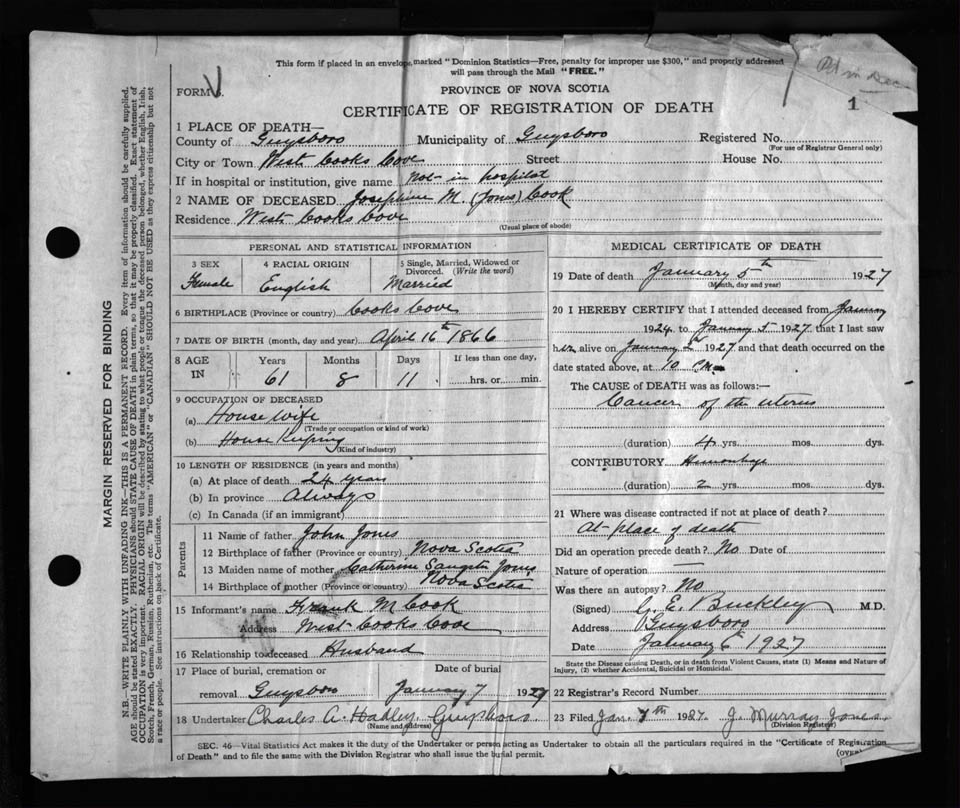 This form if placed in an envelope, marked "Dominion Statistics—Free, penalty for improper use $300," and properly addressed
will pass through the Mail "FREE."
FORM
PROVINCE OF NOVA SCOTIA
CERTIFICATE OF REGISTRATION OF DEATH
1
1 PLACE OF DEATH—
County of Guysboro Municipality of Guysboro Registered No.
(For use of Registrar General only)
City or Town West Cooks Cove Street House No.
If in hospital or institution, give name Not in hospital
2 NAME OF DECEASED Josephine M. (Jones) Cook
Residence West Cooks Cove
(Usual place of abode)
MARGIN RESERVED FOR BINDING
N.B.—WRITE PLAINLY WITH UNFADING INK—THIS IS A PERMANENT RECORD. Every item of information should be carefully supplied.
AGE should be stated EXACTLY. PHYSICIANS should STATE CAUSE OF DEATH in plain terms, so that it may be properly classified. Exact statement of
OCCUPATION is very important. RACIAL ORIGIN will be described by stating to what people or tongue the deceased person belonged, whether English, Irish,
Scotch, French, German, Russian, Ruthenian, etc. The terms "AMERICAN" or "CANADIAN" SHOULD NOT BE USED as they express citizenship but not
a race or people. See instructions on back of Certificate.
PERSONAL AND STATISTICAL INFORMATION
3 SEX 4 RACIAL ORIGIN 5 Single, Married, Widowed or
Divorced. (Write the word)
Female English Married
6 BIRTHPLACE (Province or country) Cooks Cove
7 DATE OF BIRTH (month, day and year) April 16th 1866
8 AGE IN Years Months Days If less than one day,
61 8 11 hrs. or min.
9 OCCUPATION OF DECEASED
(a) House Wife
(Trade or occupation or kind of work)
(b) House Keeping
(Kind of industry)
10 LENGTH OF RESIDENCE (in years and months)
(a) At place of death 24 years
(b) In province Always
(c) In Canada (if an immigrant)
Parents
11 Name of father John Jones
12 Birthplace of father (Province or country) Nova Scotia
13 Maiden name of mother Catherine Sangster Jones
14 Birthplace of mother (Province or country) Nova Scotia
15 Informant's name Frank M Cook
Address West Cooks Cove
16 Relationship to deceased Husband
17 Place of burial, cremation or Date of burial
removal Guysboro January 7 1927
18 Undertaker Charles A. Hadley, Guysboro
(Name and address)
MEDICAL CERTIFICATE OF DEATH
19 Date of death January 5th 1927
(Month, day and year)
20 I HEREBY CERTIFY that I attended deceased from January
1924 to January 5 1927 that I last saw
her alive on January 1927 and that death occurred on the
date stated above, at 10 P.M.
The CAUSE OF DEATH was as follows:—
Cancer of the uterus
(duration) 4 yrs. mos. dys.
CONTRIBUTORY Hemorrhage
(duration) 2 yrs. mos. dys.
21 Where was disease contracted if not at place of death?
At place of death
Did an operation precede death? No Date of
Nature of operation —
Was there an autopsy? No
(Signed) G. E. Buckley M.D.
Address Guysboro
Date January 6 1927
State the Disease causing Death, or in death from Violent Causes, state (1) Means and Nature of
Injury, (2) whether Accidental, Suicidal or Homicidal.
22 Registrar's Record Number
23 Filed Jan. 7th 1927. J. Murray Jones
(Division Registrar)
SEC. 46—Vital Statistics Act makes it the duty of the Undertaker or person acting as Undertaker to obtain all the particulars required in the "Certificate of Registration
of Death" and to file the same with the Division Registrar who shall issue the burial permit.
(OVER)